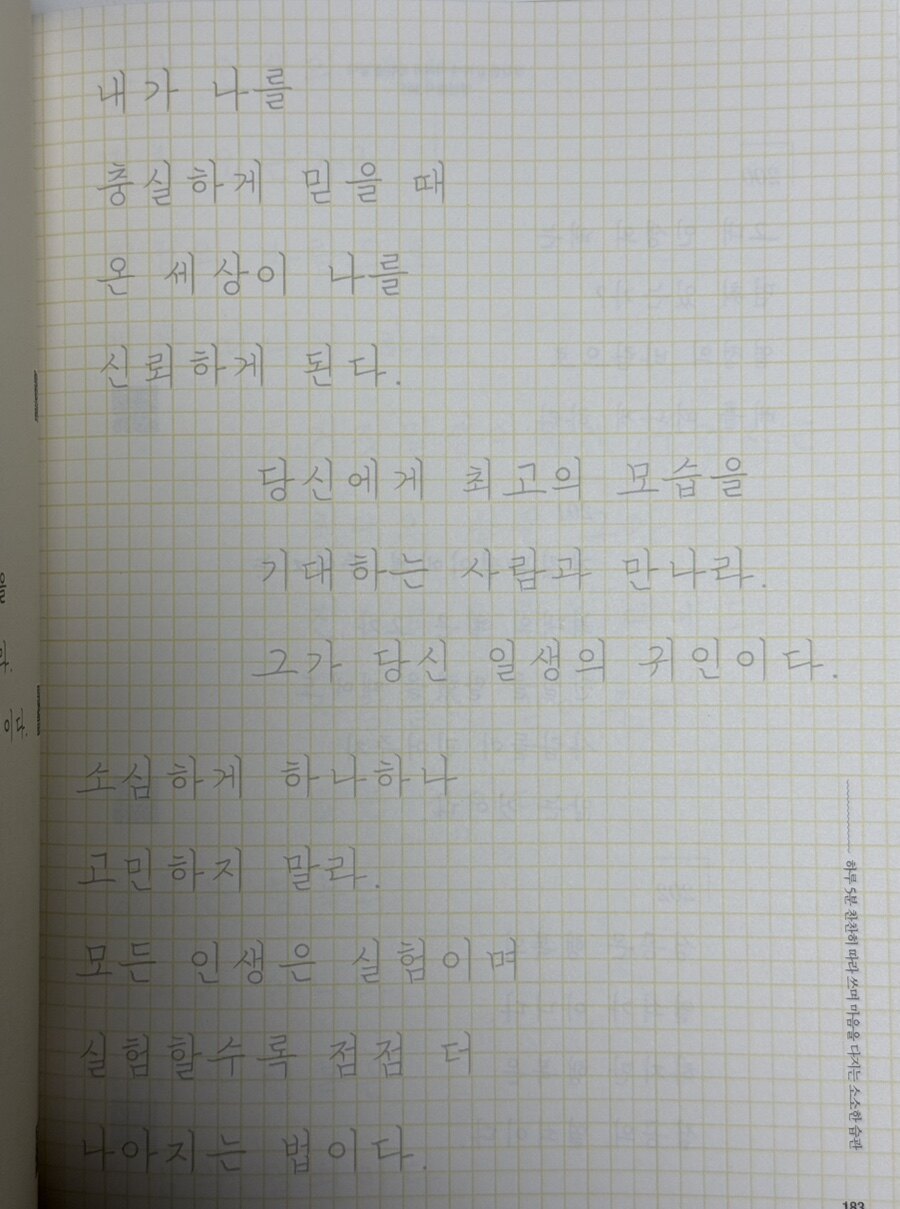 내가 나를
충실하게 믿을 때
온 세상이 나를
신뢰하게 된다.
당신에게 최고의 모습을
기대하는 사람과 만나라.
그가 당신 일생의 귀인이다.
소심하게 하나하나
고민하지 말라.
모든 인생은 실험이며
실험할수록 점점 더
나아지는 법이다.
하루 5분 찬찬히 따라 쓰며 마음을 다지는 소소한 습관
183